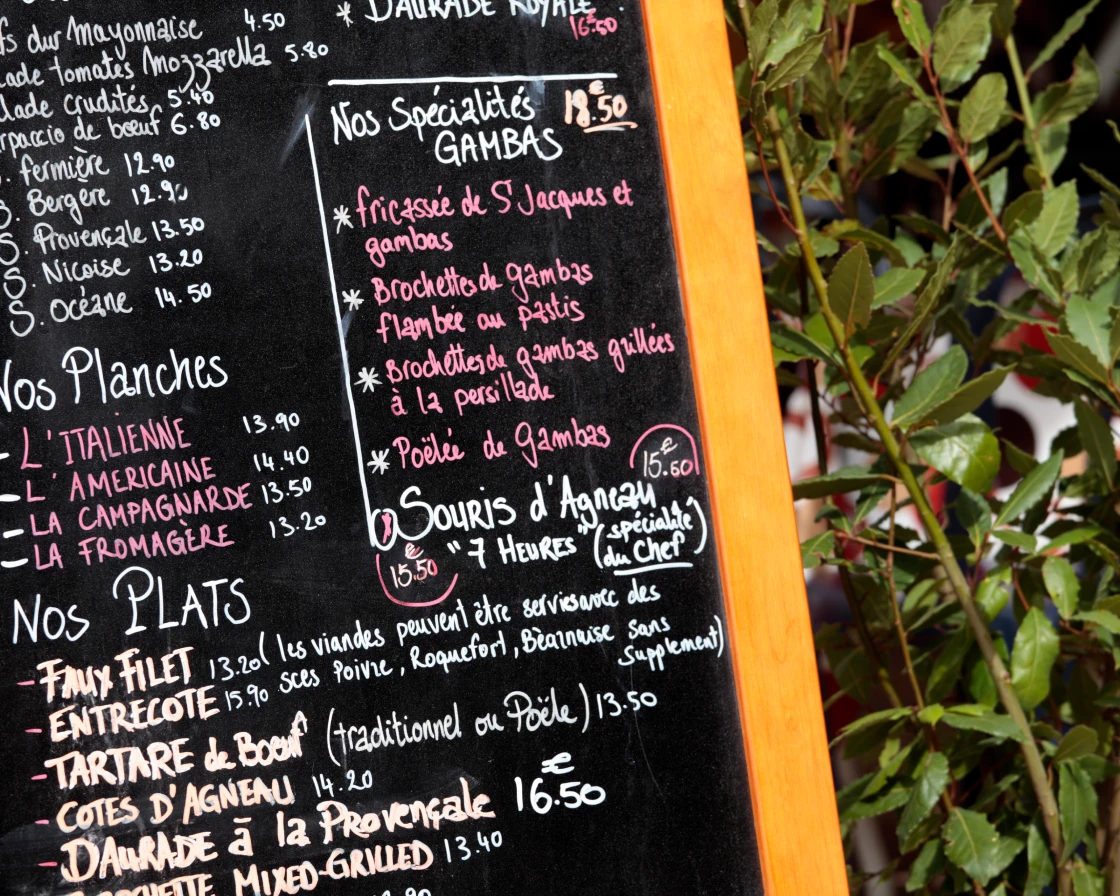 dur Mayonnaise 4.50
tomates Mozzarella 5.80
crudités 5.40
de bœuf 6.80
fermière 12.90
Bergère 12.90
S. Provençale 13.50
S. Niçoise 13.20
S. Océane 14.50
Nos Planches
- L'ITALIENNE 13.90
- L'AMERICAINE 14.40
- LA CAMPAGNARDE 13.50
- LA FROMAGÈRE 13.20
* DAURADE ROYALE
16.50 €
Nos Spécialités 18.50 €
GAMBAS
* fricassée de St Jacques et
gambas
* Brochettes de Gambas
flambée au pastis
* Brochettes de gambas grillées
à la persillade
* Poëlée de Gambas
15.60 €
Souris d'Agneau
"7 HEURES" (spécialité
du Chef)
15.50 €
Nos PLATS
- FAUX FILET 13.20 (les viandes peuvent être servies avec des
- ENTRECOTE 15.90 sces Poivre, Roquefort, Bèarnaise sans
supplement)
- TARTARE de Boeuf (traditionnel ou Poële) 13.50
- COTES D'AGNEAU 14.20
- DAURADE à la Provençale 16.50 €
MIXED-GRILLED 13.40